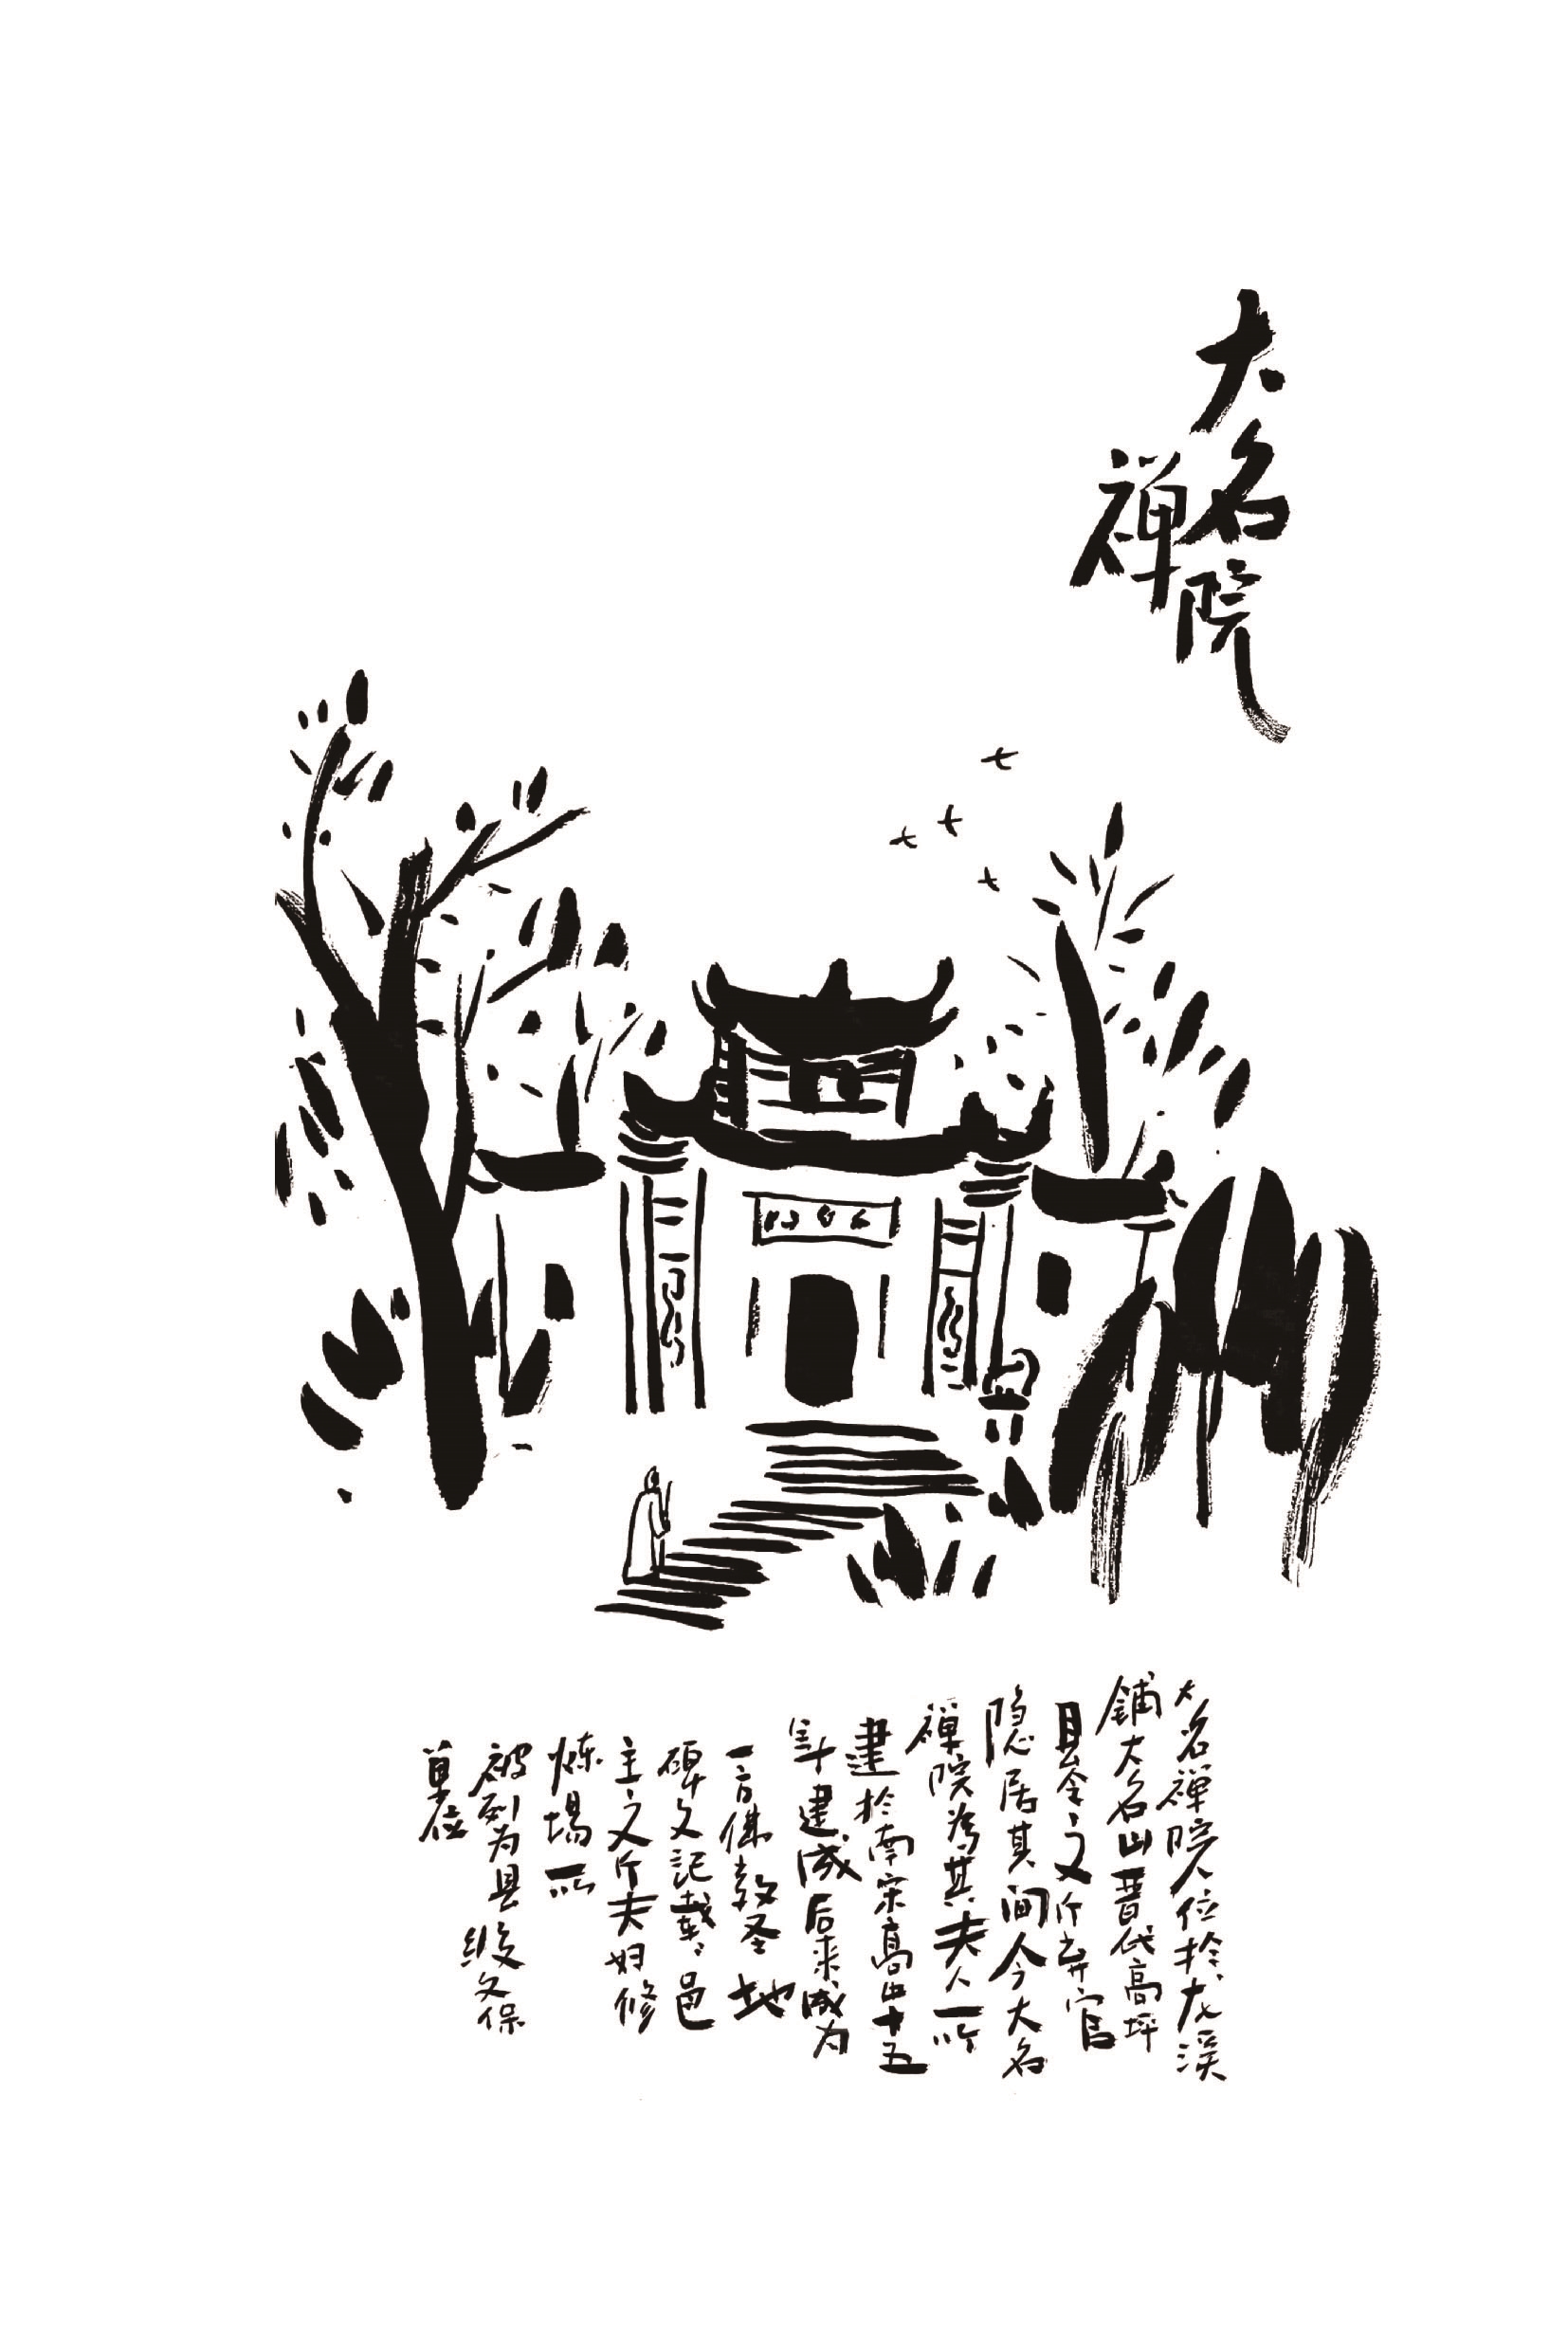 大名禅院
大名禅院位於龙溪
铺大名山晋代高坪
县令文斤弃官
隐居其间今大名
禅院為其夫人所
建於南宋高十五
年建成后来成为
一方佛教圣地
碑文记载:邑
主文斤夫妇修
炼场所
被列为县级文保
单位